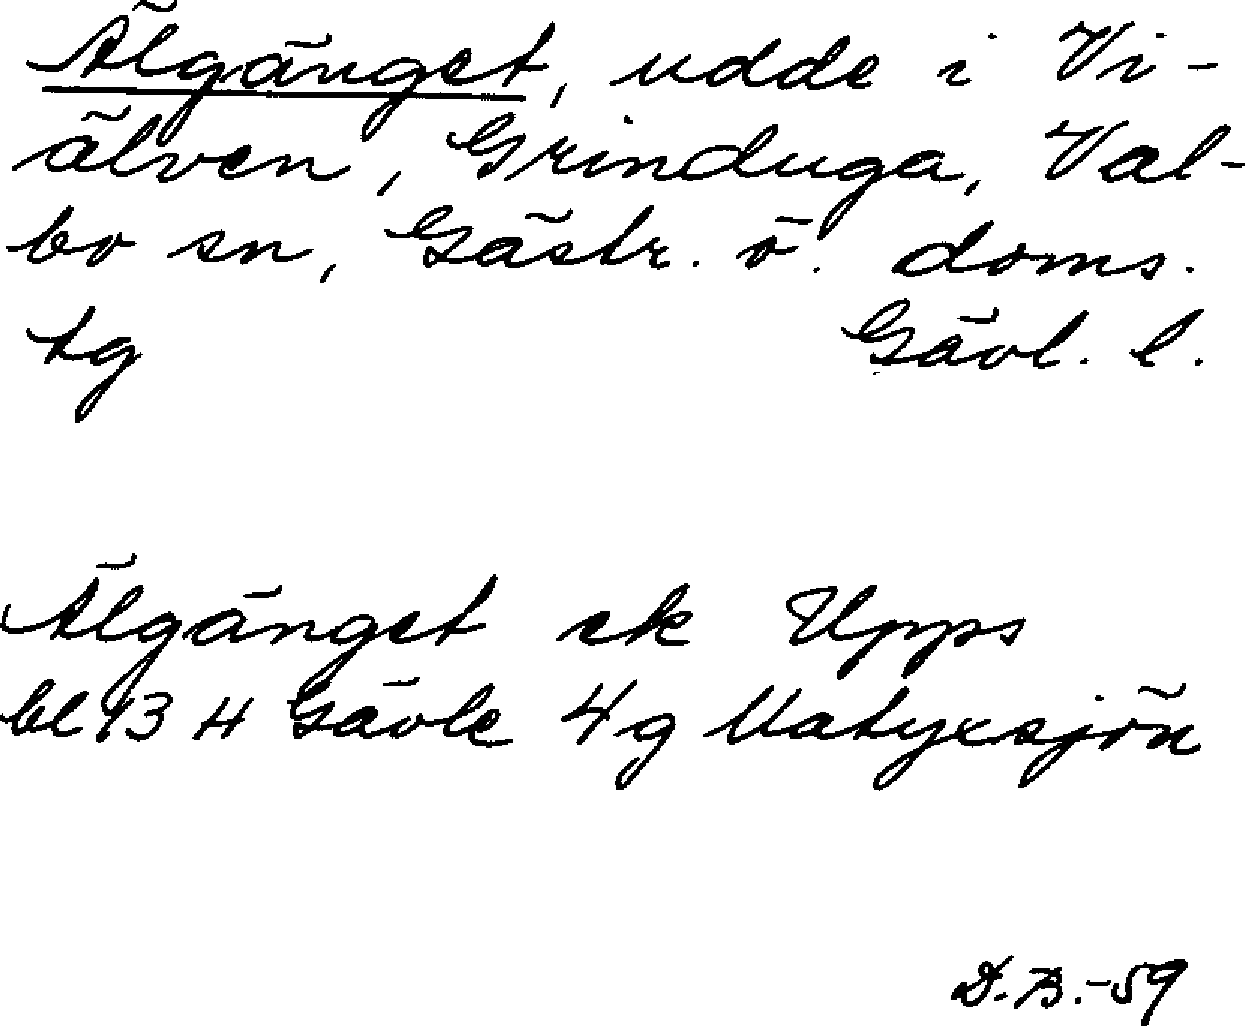 Älgänget, udde i Vi-
älven, Grinduga, Val-
bo sn, Gästr. ö. doms.
tg Gävl. l.
Älgänget ek Upps
bl 93 H Gävle 4g Matyxsjön
D.B.-59